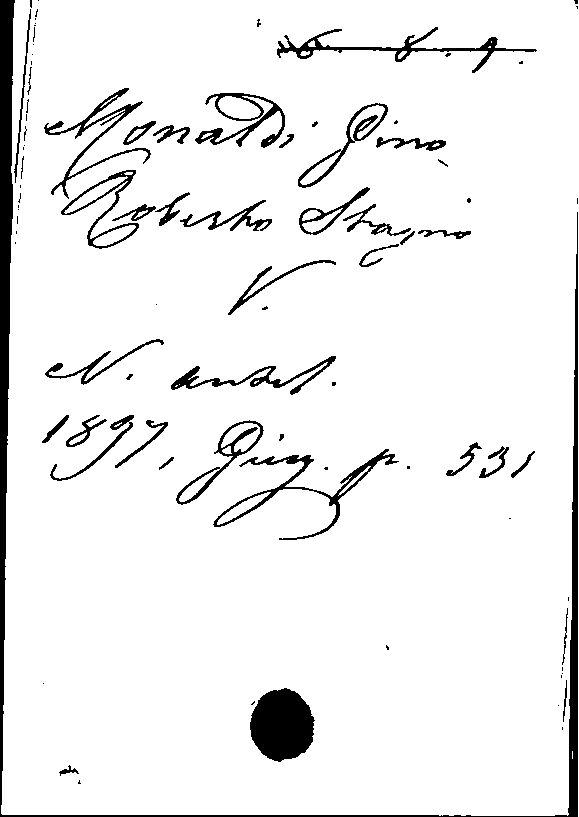 6. 8. 9.
Monaldi Gino
Roberto Stagno
V.
N. antol.
1897, Giug. p. 531